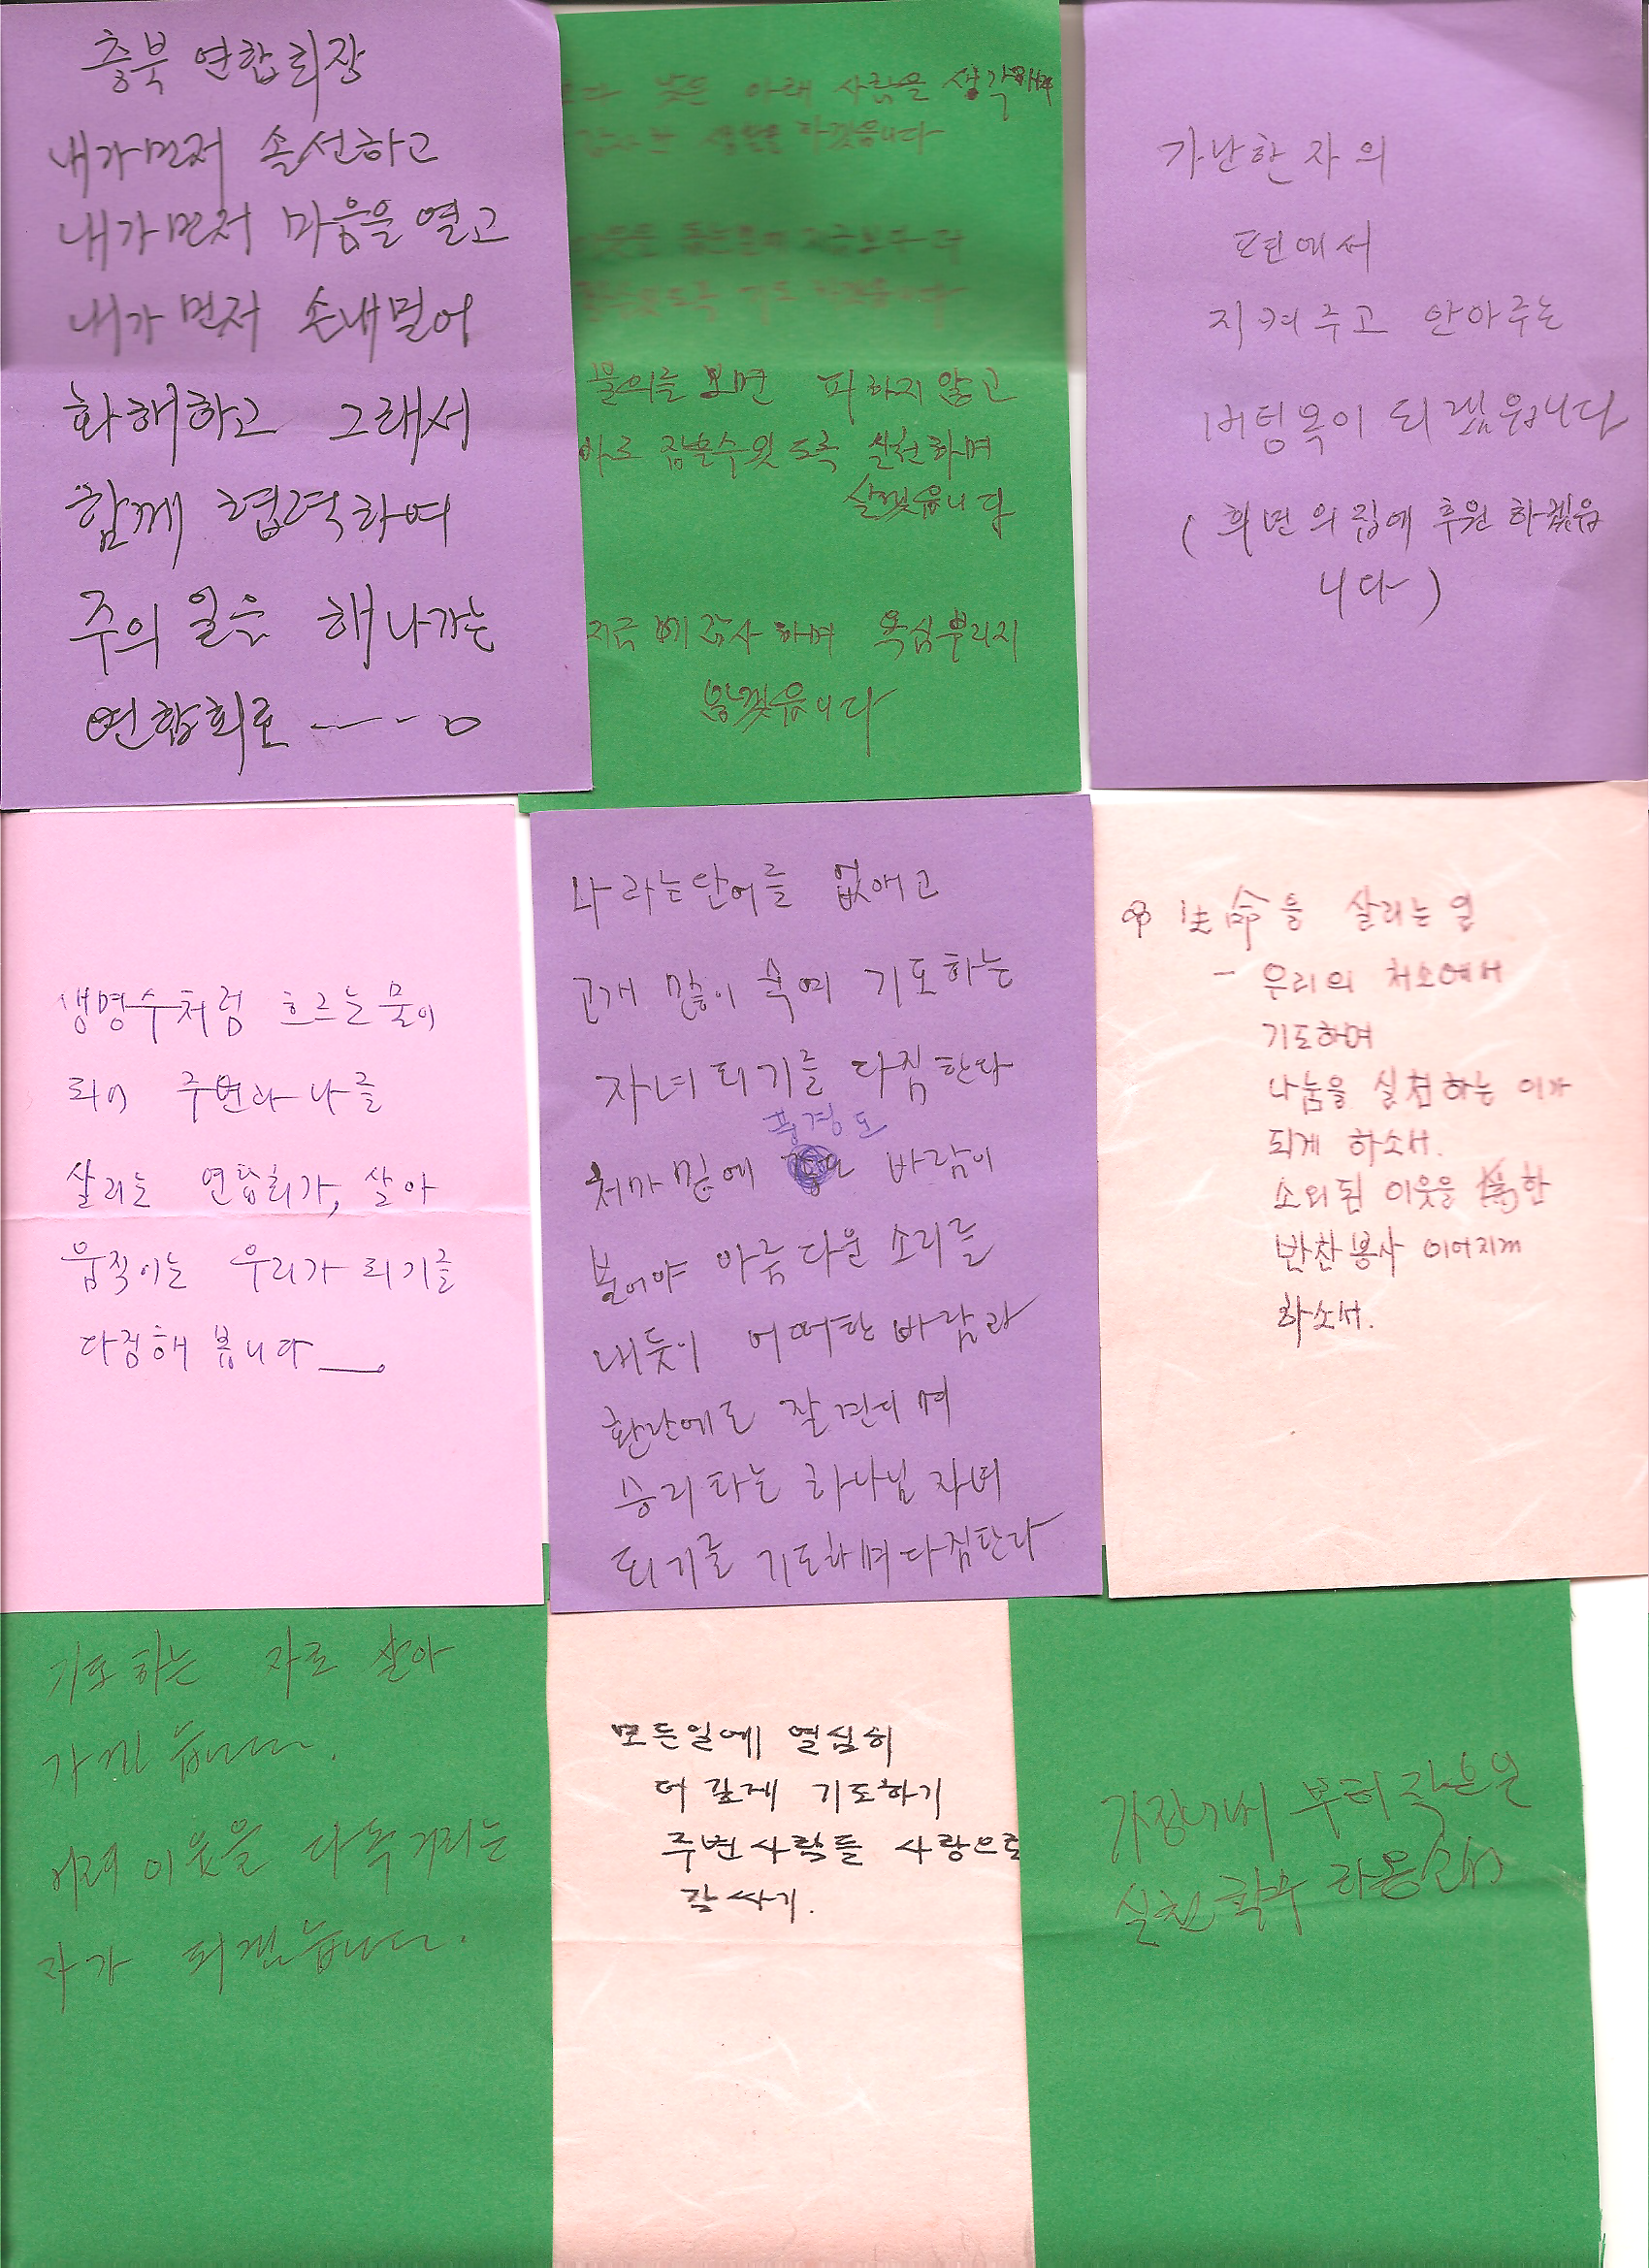 충북 연합회장
내가먼저 솔선하고
내가먼저 마음을 열고
내가 먼저 손내밀어
화해하고 그래서
함께 협력하여
주의 일을 해나가는
연합회로
낮은 아래 사람을 생각해
생활을 하겠읍니다
불의를 보면 피하지 않고
바로 잡을수 있도록 실천하며
살겠읍니다
지금 감사하며 욕심부리지
않겠읍니다
가난한 자의
편에서
지켜주고 안아주는
버팀목이 되겠읍니다
( 희년의집에 후원 하겠읍
니다 )
생명수처럼 흐르는 물이
되어 주변과 나를
살리는 연합회가, 살아
움직이는 우리가 되기를
다짐해 봅니다
나 라는단어를 없애고
고개 많이 숙여 기도하는
자녀 되기를 다짐 한다
풍경도
처마 밑에 바람이
불어야 아름다운 소리를
내듯이 어떠한 바람과
환난에도 잘 견디며
승리하는 하나님 자녀
되기를 기도하며 다짐한다
生命을 살리는 일
- 우리의 처소에서
기도하며
나눔을 실천하는 이가
되게 하소서.
소외된 이웃을 위(爲)한
반찬봉사 이어지게
하소서.
기도하는 자로 살아
가겠습니다.
이웃을 다독거리는
자가 되겠습니다.
모든일에 열심히
더 깊게 기도하기
주변사람들 사랑으로
감싸기.
부터 작은일
실천